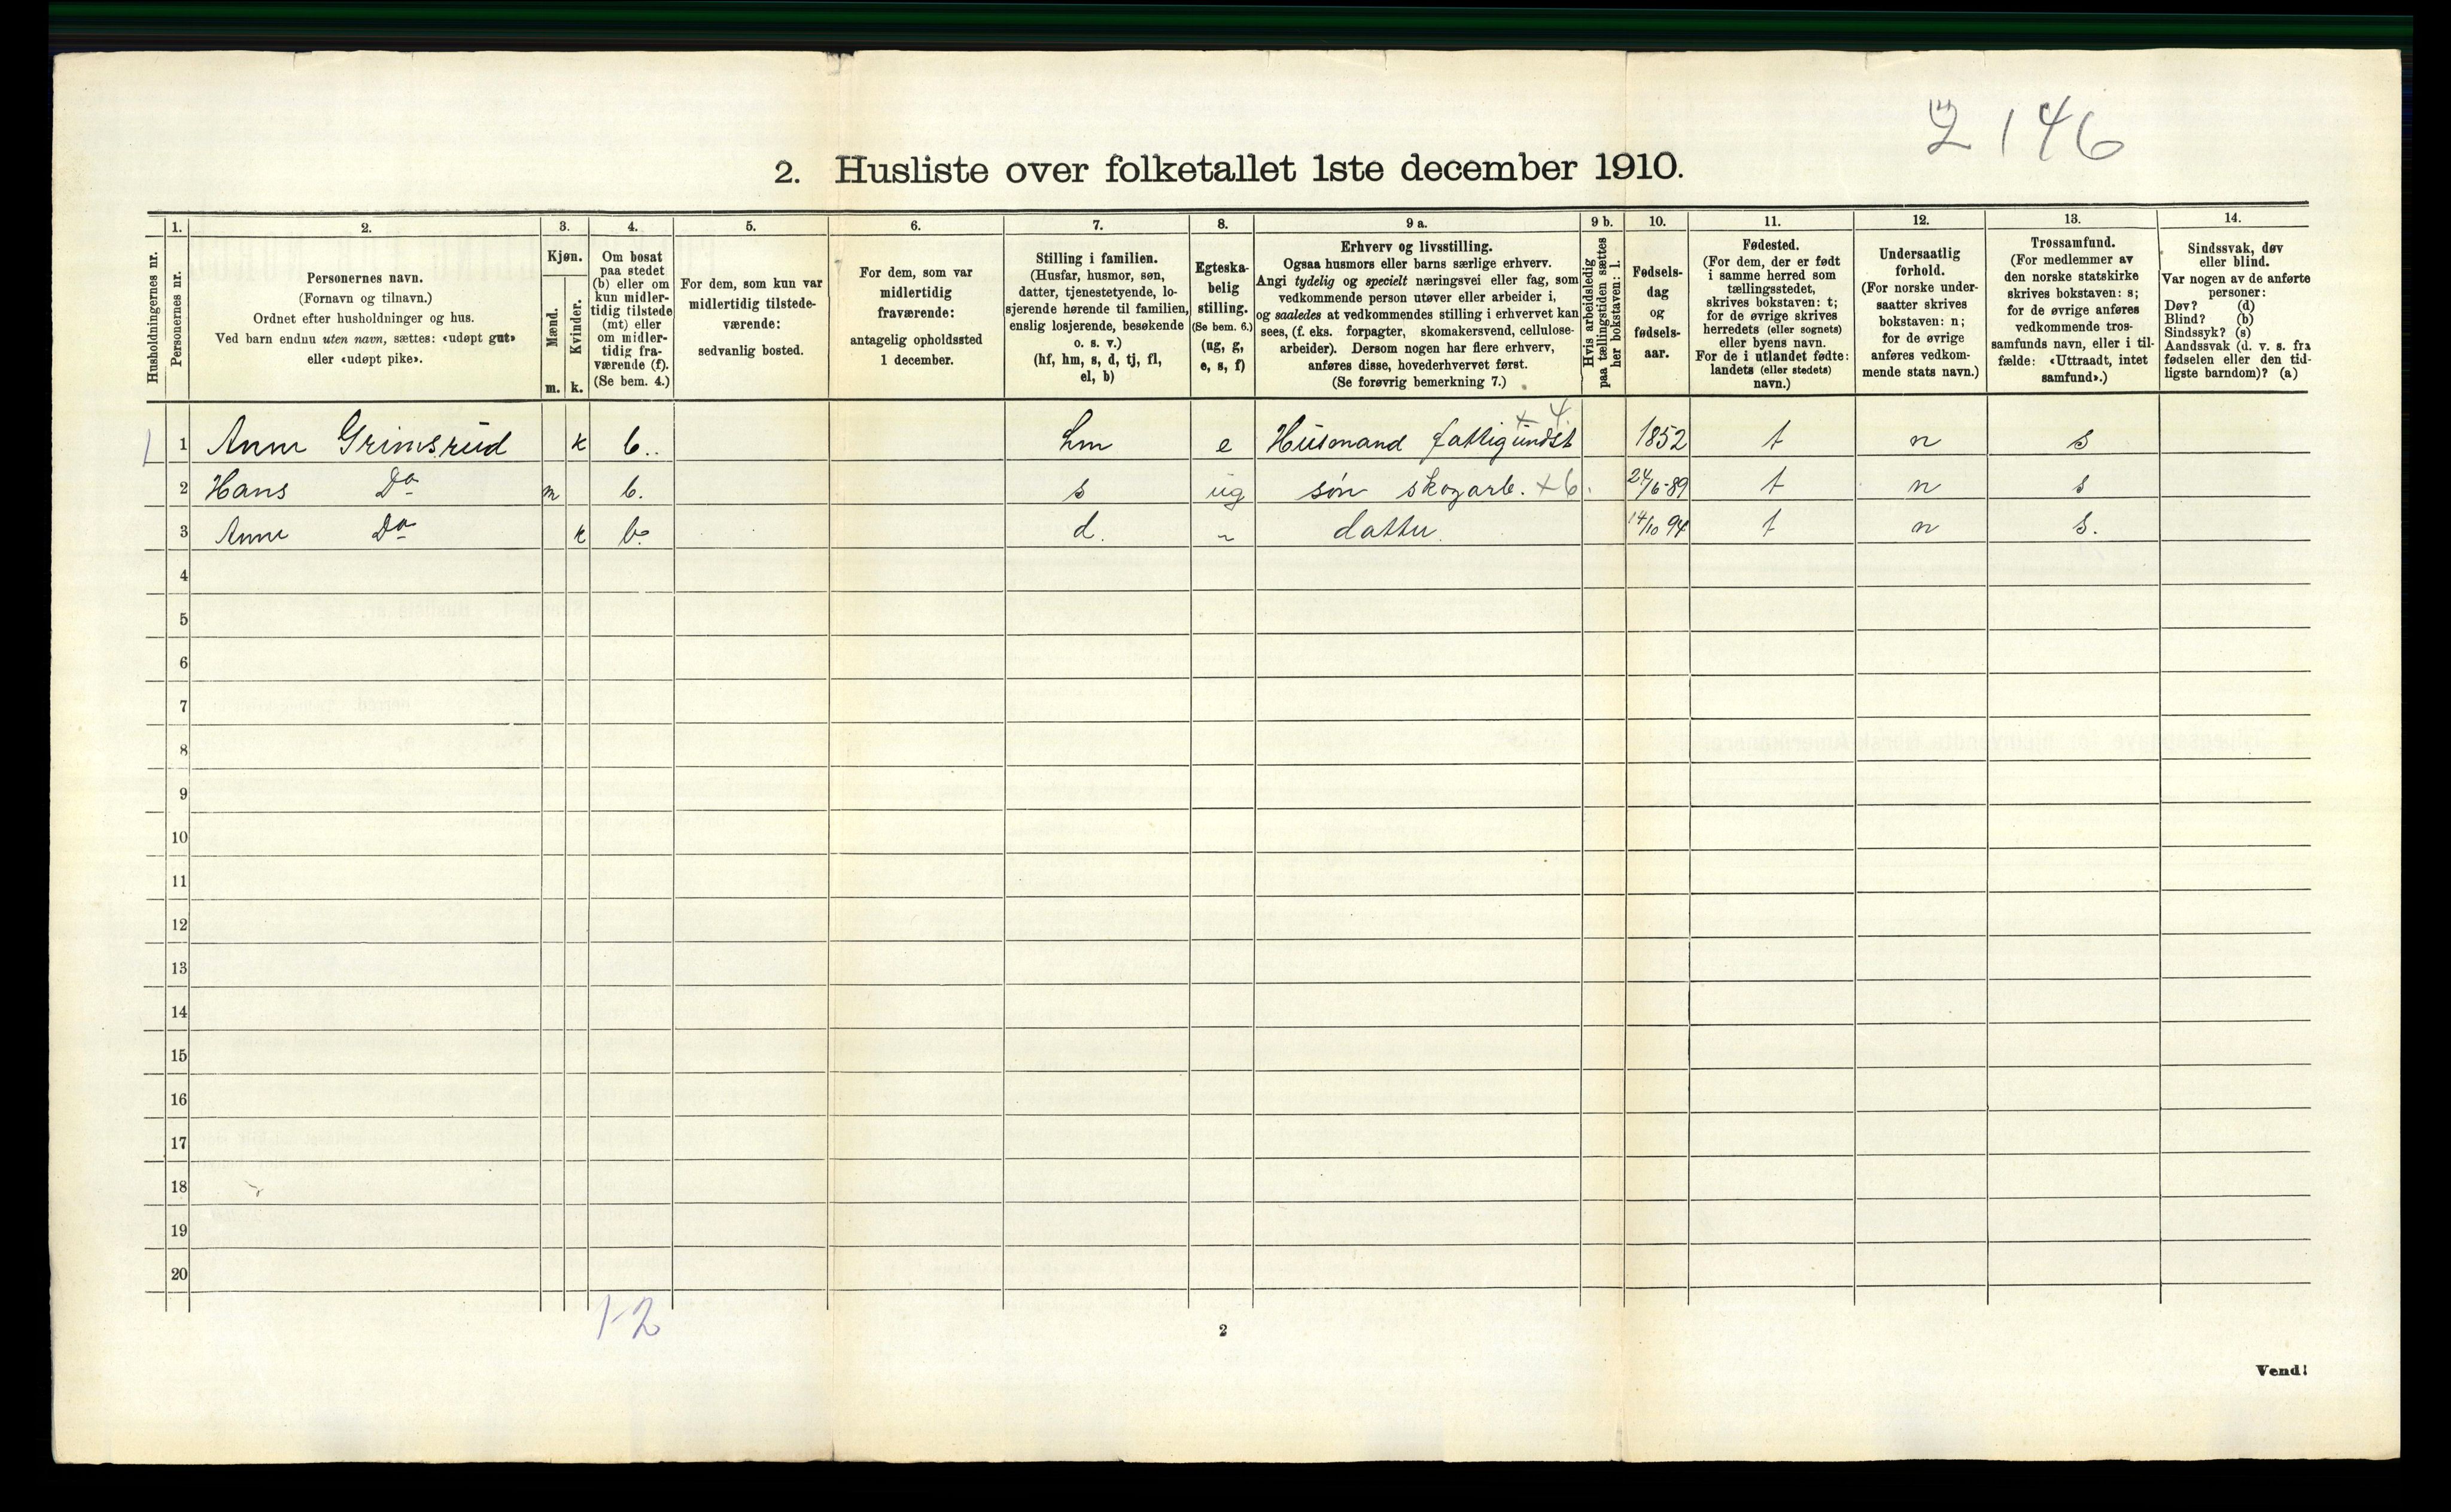 2 146
2. Husliste over folketallet 1ste december 1910.
Husholdningernes nr.
1.
Personernes nr.
2.
Personernes navn.
(Fornavn og tilnavn.)
Ordnet efter husholdninger og hus.
Ved barn endnu uten navn, sættes: «udøpt gut»
eller «udøpt pike».
3.
Kjøn.
Mænd.
m.
Kvinder.
k.
4.
Om bosat
paa stedet
(b) eller om
kun midler-
tidig tilstede
(mt) eller
om midler-
tidig fra-
værende (f).
(Se bem. 4.)
5.
For dem, som kun var
midlertidig tilstede-
værende:
sedvanlig bosted.
6.
For dem, som var
midlertidig
fraværende:
antagelig opholdssted
1 december.
7.
Stilling i familien.
(Husfar, husmor, søn,
datter, tjenestetyende, lo-
sjerende hørende til familien,
enslig losjerende, besøkende
o. s. v.)
(hf, hm, s, d, tj, fl,
el, b)
8.
Egteska-
belig
stilling.
(Se bem. 6.)
(ug, g,
e, s, f)
9 a.
Erhverv og livsstilling.
Ogsaa husmors eller barns særlige erhverv.
Angi tydelig og specielt næringsvei eller fag, som
vedkommende person utøver eller arbeider i,
og saaledes at vedkommendes stilling i erhvervet kan
sees, (f. eks. forpagter, skomakersvend, cellulose-
arbeider). Dersom nogen har flere erhverv,
anføres disse, hovederhvervet først.
(Se forøvrig bemerkning 7.)
9 b.
Hvis arbeidsledig
paa tællingstiden sættes
her bokstaven: l.
10.
Fødsels-
dag
og
fødsels-
aar.
11.
Fødested.
(For dem, der er født
i samme herred som
tællingsstedet,
skrives bokstaven: t;
for de øvrige skrives
herredets (eller sognets)
eller byens navn.
For de i utlandet fødte:
landets (eller stedets)
navn.)
12.
Undersaatlig
forhold.
(For norske under-
saatter skrives
bokstaven: n;
for de øvrige
anføres vedkom-
mende stats navn.)
13.
Trossamfund.
(For medlemmer av
den norske statskirke
skrives bokstaven: s;
for de øvrige anføres
vedkommende tros-
samfunds navn, eller i til-
fælde: «Uttraadt, intet
samfund».)
14.
Sindssvak, døv
eller blind.
Var nogen av de anførte
personer:
Døv? (d)
Blind? (b)
Sindssyk? (s)
Aandssvak (d. v. s. fra
fødselen eller den tid-
ligste barndom)? (a)
x 4
1 1 Anne Grimsrud k b. hm e Husmand fattigundst 1852 t n s
2 Hans Do m b. s ug søn skogarb. x 6. 24/6-89 t n s
3 Anne Do k b. d. " datter. 14/10 94 t n s.
4
5
6
7
8
9
10
11
12
13
14
15
16
17
18
19
20
1-2
2
Vend!